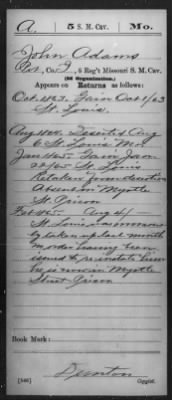 A. 5 S. M. Cav. Mo.
John Adams
Pvt, Co. I, 5 Reg't Missouri S. M. Cav.
(2d Organization.)
Appears on Returns as follows:
Oct. 1863. Gain Oct 1/63
St. Louis.
Aug 1864. Deserted Aug
6 St. Louis Mo
Jan 1865. Gain Jan
22/65 St. Louis
Retaken from desertion
Absent in Myrtle
St. Prison
Feb 1865. Aug 4/
St. Louis was erroneously
taken up last month
no order having been
issued to reinstate him
he is now in Myrtle
Street Prison
Book Mark:
(546)
Denton
Copyist.